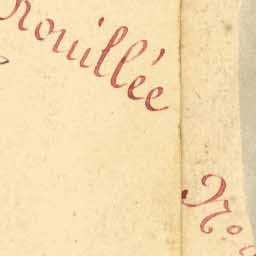 rouillée
N°